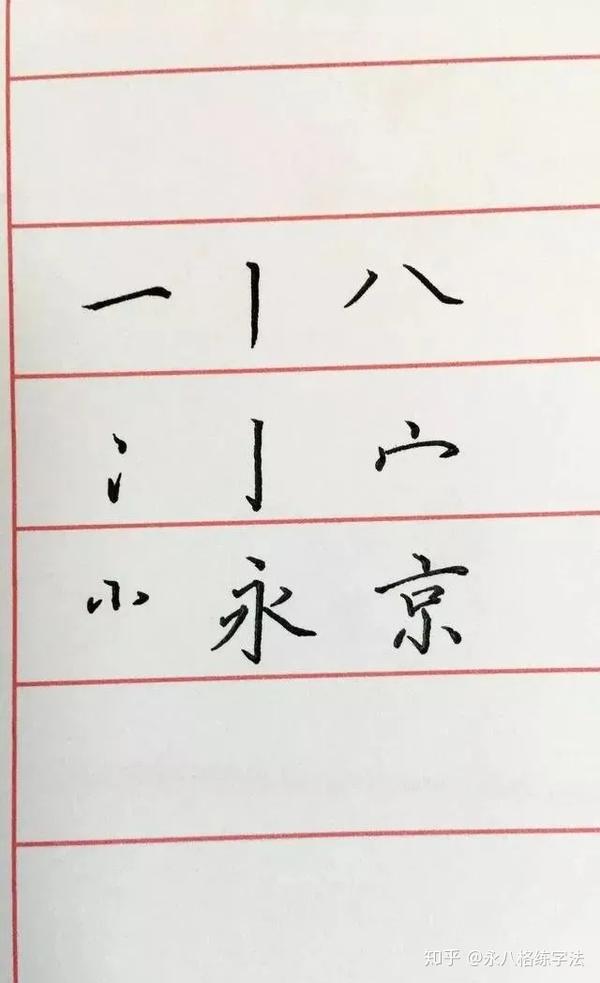 一 丨 八
冫 亅 宀
小 永 京
知乎 @永八格练字法